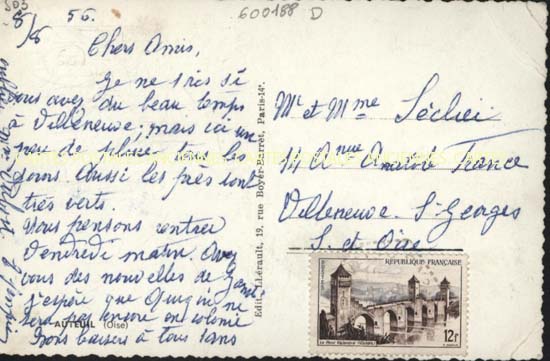 503
8/8 56.
600188 D
Chers Amis,
Je ne sais si
vous avez du beau temps
à Villeneuve; mais ici un
peu de pluie tous les
jours. Aussi les prés sont
très verts.
Nous pensons rentrer
Vendredi matin. Avez
vous des nouvelles de
j'espère que Quiqui ne
sera pas encore en colonie
Bons baisers à tous
AUTEUIL (Oise)
Edit. L'Hérault, 19, rue Boyer-Barret, Paris-14e.
Mr et Mme
14 Anue Anatole France
Villeneuve St Georges
S. et Oise
REPUBLIQUE FRANÇAISE
12f